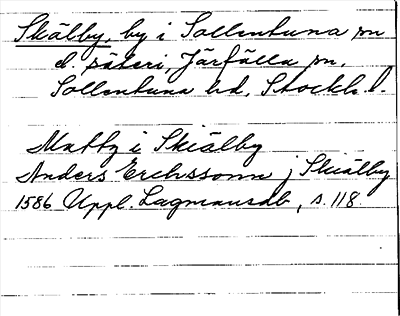 Skälby, by i Sollentuna sn
el. säteri, Järfälla sn,
Sollentuna hd, Stockh. l.
Mattz i Skiälby
Anders Erchssonn j Skiälby
1586 Uppl. Lagmansdb, s. 118.